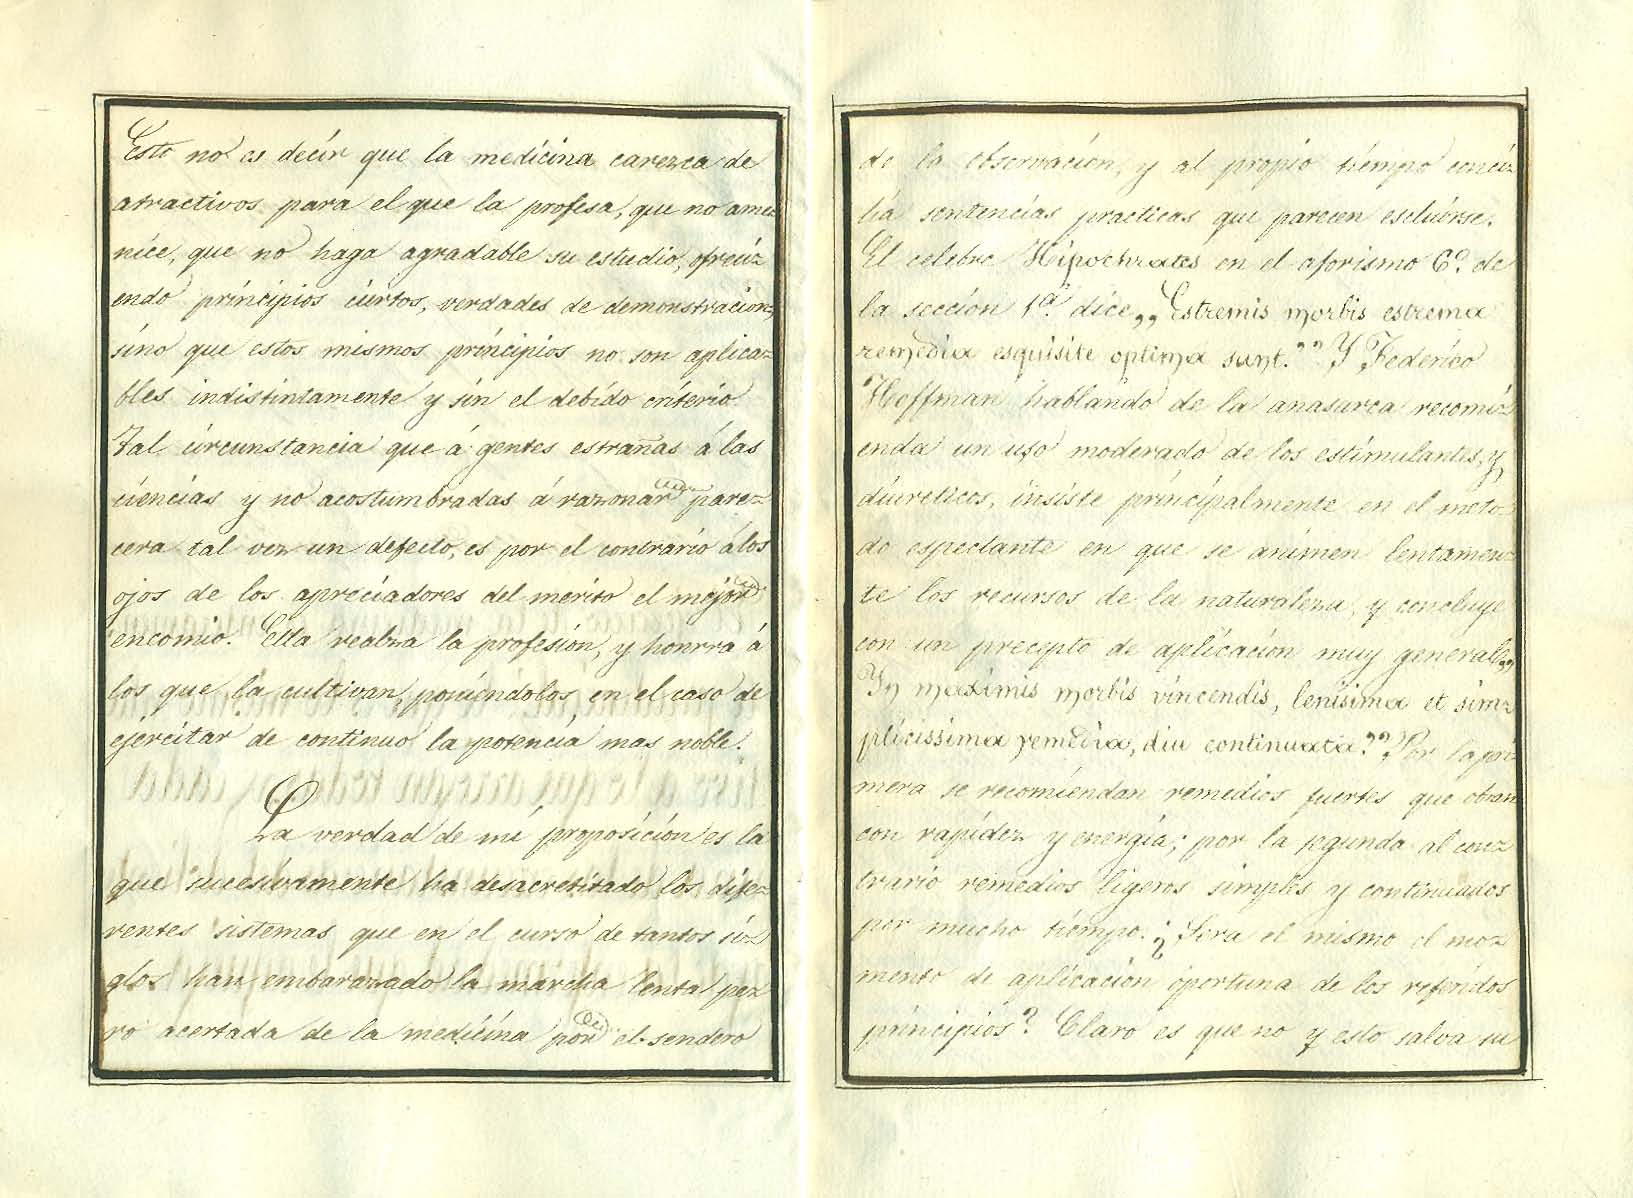 Esto no es decir que la medicina carezca de
atractivos para el que la profesa, que no ame=
nice, que no haga agradable su estudio, ofreci=
endo principios ciertos, verdades de demonstracion,
sino que estos mismos principios no son aplica=
bles indistintamente y sin el debido criterio
Tal circunstancia que á gentes estrañas á las
ciencias y no acostumbradas á razonar pare=
cera tal vez un defecto, es por el contrario á los
ojos de los apreciadores del merito el mejor
encomio. Ella realza la profesión, y honrra á
los que la cultivan, poniéndolos en el caso de
ejercitar de continuo la potencia mas noble.
La verdad de mi proposición es la
que sucesivamente ha desacretitado los dife=
rentes sistemas que en el curso de tantos si=
glos han embarazado la marcha lenta pe=
ro acertada de la medicina por el sendero
de la observación, y al propio tiempo conci=
lia sentencias practicas que parecen escluirse.
El celebre Hipochrates en el aforismo 6º. de
la sección 1ª dice,, Estremis morbis estrema
remedia esquisite optima sunt." Y Federico
Hoffman hablando de la anasarca recomi=
enda un uso moderado de los estimulantes, y
diureticos, insiste principalmente en el meto=
do espectante en que se animen lentamen=
te los recursos de la naturaleza, y concluye
con un precepto de aplicación muy general,,
Yn maximis morbis vincendis, lenisima et sim=
plicissima remedia, diu continuata?" Por la pri=
mera se recomiendan remedios fuertes que obran
con rapidez y energia; por la segunda al con=
trario remedios ligeros simples y continuados
por mucho tiempo. ¿Sera el mismo el mo=
mento de aplicación oportuna de los referidos
principios? Claro es que no y esto salva su